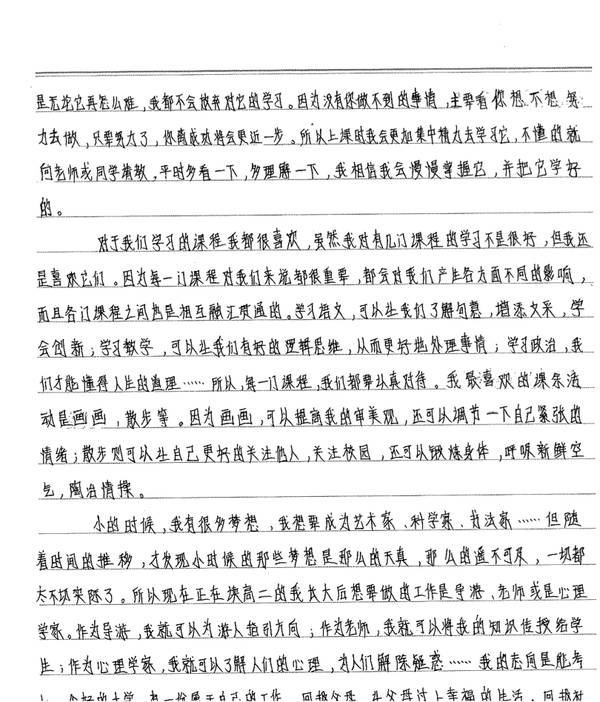 是无论它再怎么难，我都不会放弃对它的学习。因为没有你做不到的事情，主要看你想不想努
力去做，只要努力了，你离成功将会更近一步。所以上课时我会更加集中精力去学习它，不懂的就
向老师或同学请教，平时多看一下，多理解一下，我相信我会慢慢掌握它，并把它学好
的。
对于我们学习的课程我都很喜欢，虽然我对有几门课程的学习不是很好，但我还
是喜欢它们。因为每一门课程对我们来说都很重要，都会对我们产生各方面不同的影响，
而且各门课程之间也是相互融汇贯通的。学习语文，可以让我们了解句意，增添文采，学
会创新；学习数学，可以让我们有好的逻辑思维，从而更好地处理事情；学习政治，我
们才能懂得人生的道理……所以，每一门课程，我们都要认真对待。我最喜欢的课余活
动是画画，散步等。因为画画，可以提高我的审美观，还可以调节一下自己紧张的
情绪；散步则可以让自己更好的关注他人，关注校园，还可以锻炼身体，呼吸新鲜空
气，陶冶情操。
小的时候，我有很多梦想，我想要成为艺术家、科学家、书法家……但随
着时间的推移，才发现小时候的那些梦想是那么的天真，那么的遥不可及，一切都
太不切实际了。所以现在正在读高二的我长大后想要做的工作是导游、老师或是心理
学家。作为导游，我就可以为游人指引方向；作为老师，我就可以将我的知识传授给学
生；作为心理学家，我就可以了解人们的心理，为人们解除疑惑……我的志向是能考
上一个好的大学，有一份属于自己的工作，回报父母，让父母过上幸福的生活，回报社